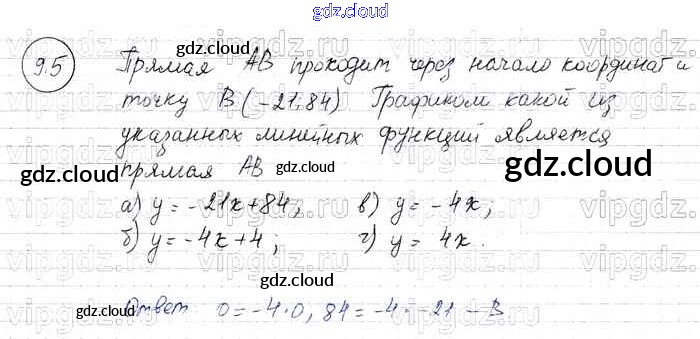 gdz.cloud
9.5 Прямая AB проходит через начало координат и
точку B (-21; 84) Графиком какой из
указанных линейных функций является
прямая AB
а) y = -21x+84; в) y = -4x;
б) y = -4x+4; г) y = 4x.
Ответ 0 = -4·0, 84 = -4·-21 - В
gdz.cloud
gdz.cloud
gdz.cloud
gdz.cloud
gdz.cloud
gdz.cloud
gdz.cloud
gdz.cloud